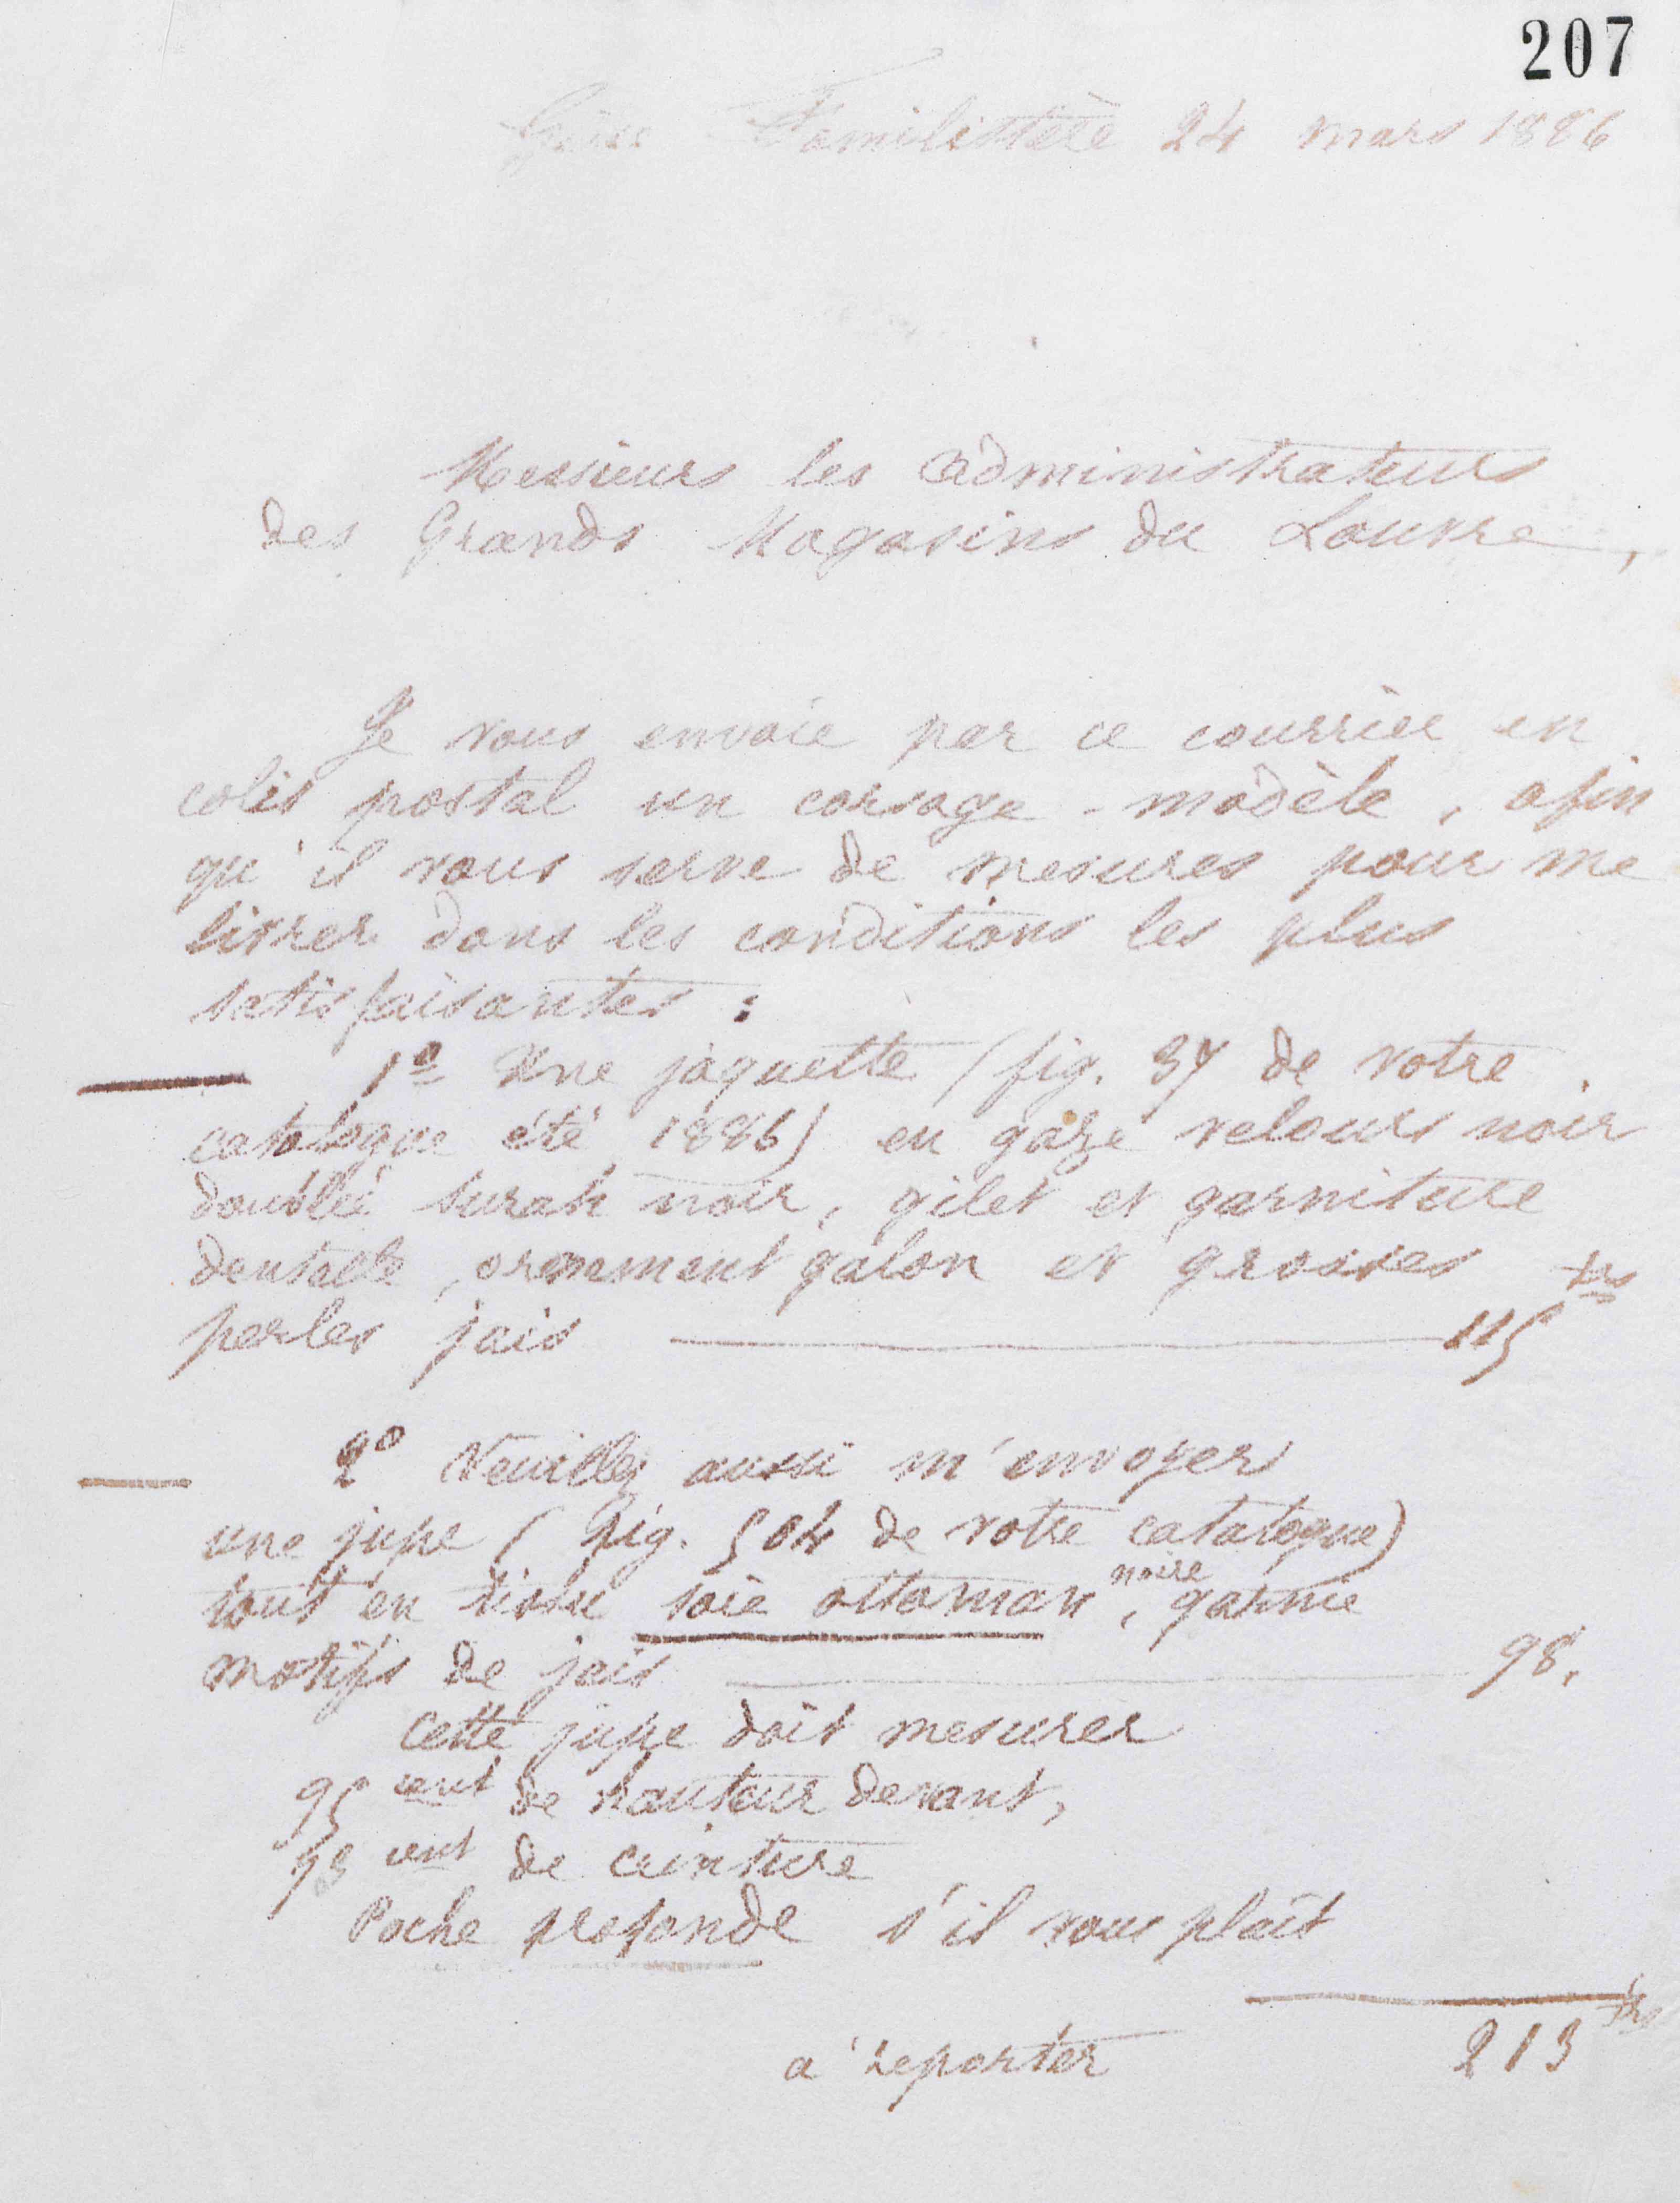 207
Guise Familistère 24 mars 1886
Messieurs les administrateurs
des Grands Magasins du Louvre,
Je vous envoie par ce courrier en
colis postal un corsage-modèle, afin
qu'il vous serve de mesures pour me
livrer dans les conditions les plus
satisfaisantes :
1º Une jaquette (fig. 37 de votre
catalogue été 1886) en gaze velours noir
doublée surah noir, gilet et garniture
dentelle, ornement galon et grosses
perles jais 115 frs
2º Veuillez aussi m'envoyer
une jupe (Fig. 504 de votre catalogue)
tout en tissu soie ottoman noire, garnie
motifs de jais 98,
Cette jupe doit mesurer
95 cent de hauteur devant,
de ceinture
Poche profonde s'il vous plaît
à reporter 213 frs